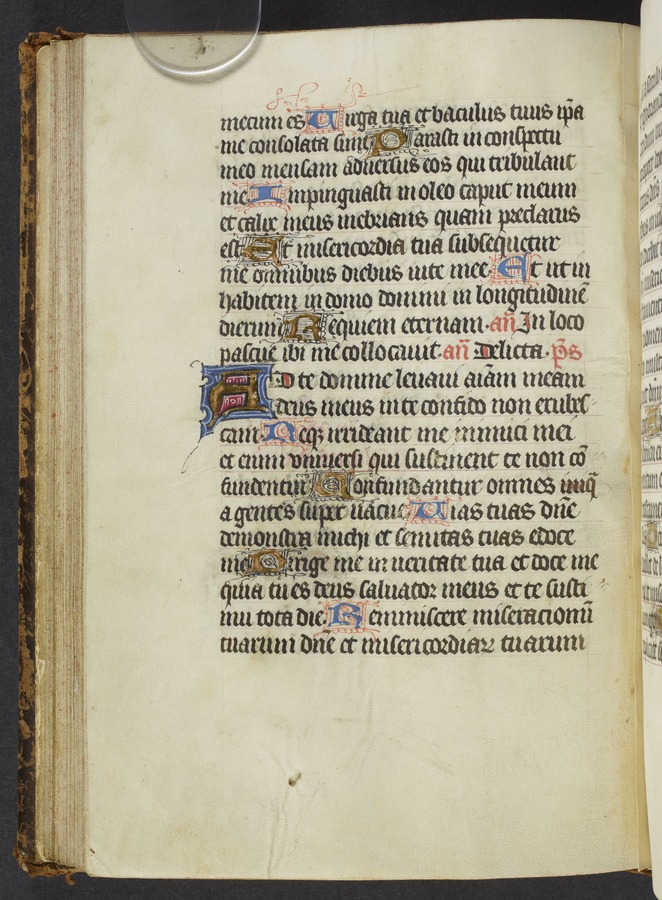 mecum es Uirga tua et baculus tuus ip̃a
me consolata sunt Parasti in conspectu
meo mensam aduersus eos qui tribulant
me Inpinguasti in oleo caput meum
et calix meus inebrians quam preclarus
est Et misericordia tua subsequetur
me omnibus diebus uite mee Et ut in
habitem in domo domini in longitudinẽ
dierum Requiem eternam. añ In loco
pascue ibi me collocauit. añ Delicta. p̃s
AD te domine leuaui aĩam meam
deus meus in te confido non erubes
cam Neqȝ irrideant me inimici mei
et enim vniuersi qui sustinent te non cõ
fundentur Confundantur omnes iniq̃
a gentes super uacue Uias tuas dñe
demonstra michi et semitas tuas edoce
me Dirige me in ueritate tua et doce me
quia tu es deus saluator meus et te susti
nui tota die Reminiscere miseracionũ
tuarum dñe et misericordiaꝝ tuarum